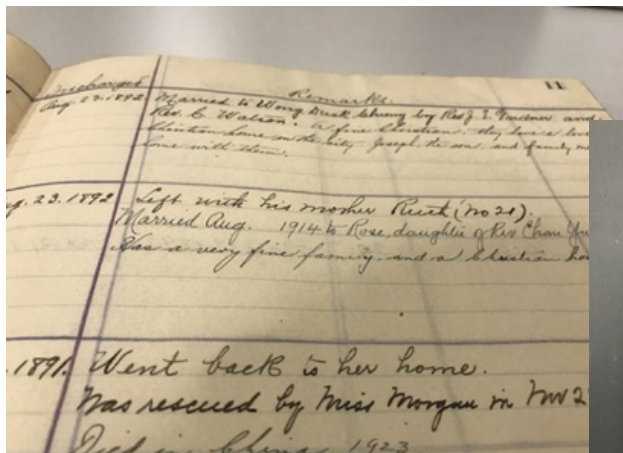 11
Discharged Remarks.
Aug. 23. 1892 Married to Wong Duck Chung by Rev J. E. Gardner and
Rev. C. Watson. A fine Christian. They have a
Christian home in the city. Joseph the son, and family
live with them.
23. 1892 Left with his mother Ruth (No 21).
Married Aug. 1914 to Rose, daughter of Rev Chan
Has a very fine family, and a Christian
1891. Went back to her home.
Was rescued by Miss Morgan in
Died in China 1923